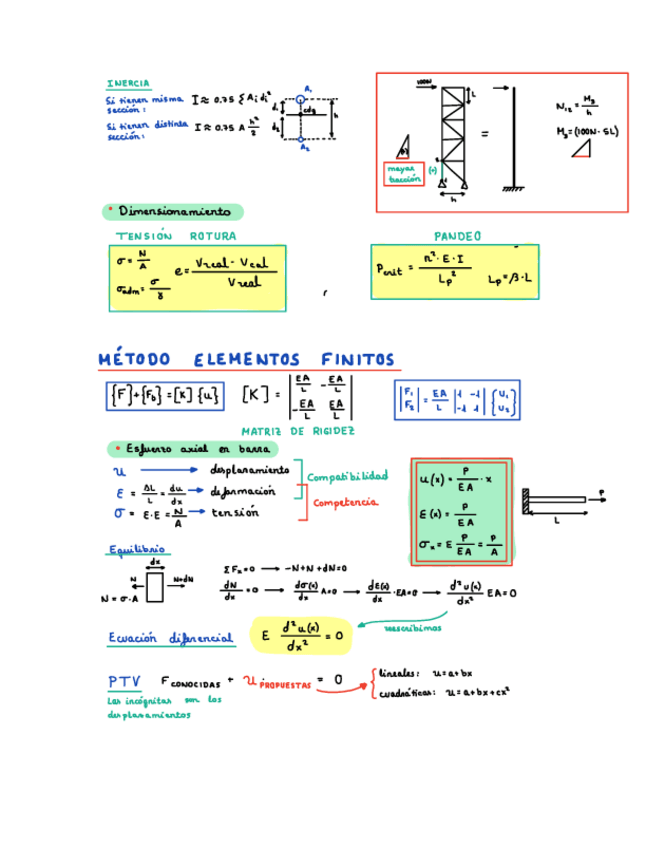 INERCIA
Si tienen misma sección: I ≈ 0.75 Σ Ai di²
Si tienen distinta sección: I ≈ 0.75 A h²/2
A1
d1
cdg
h
d2
A2
100N
L
=
N12 = M3/h
M3 = (100N · 5L)
mayor tracción
(+)
h
• Dimensionamiento
TENSIÓN ROTURA
σ = N/A
σadm = σ/γ
e = Vreal - Vcal / Vreal
PANDEO
Pcrit = π² · E · I / Lp²
Lp = β · L
MÉTODO ELEMENTOS FINITOS
{F} + {Fb} = [K] {u}
[K] = | EA/L -EA/L |
| -EA/L EA/L |
|F1 F2| = EA/L |1 -1 -1 1| {U1 U2}
MATRIZ DE RIGIDEZ
• Esfuerzo axial en barra
u → desplazamiento
ε = ΔL/L = du/dx → deformación
σ = E·ε = N/A → tensión
Compatibilidad
Competencia
u(x) = P/EA · x
ε(x) = P/EA
σx = E P/EA = P/A
P
L
Equilibrio
dx
N
N+dN
N = σ·A
ΣFx=0 → -N+N+dN=0
dN/dx = 0 → dσ(x)/dx A=0 → dε(x)/dx · EA=0 → d²u(x)/dx² EA=0
reescribimos
Ecuación diferencial
E d²u(x)/dx² = 0
PTV FCONOCIDAS + UPROPUESTAS = 0
lineales: u=a+bx
cuadráticas: u=a+bx+cx²
Las incógnitas son los
desplazamientos